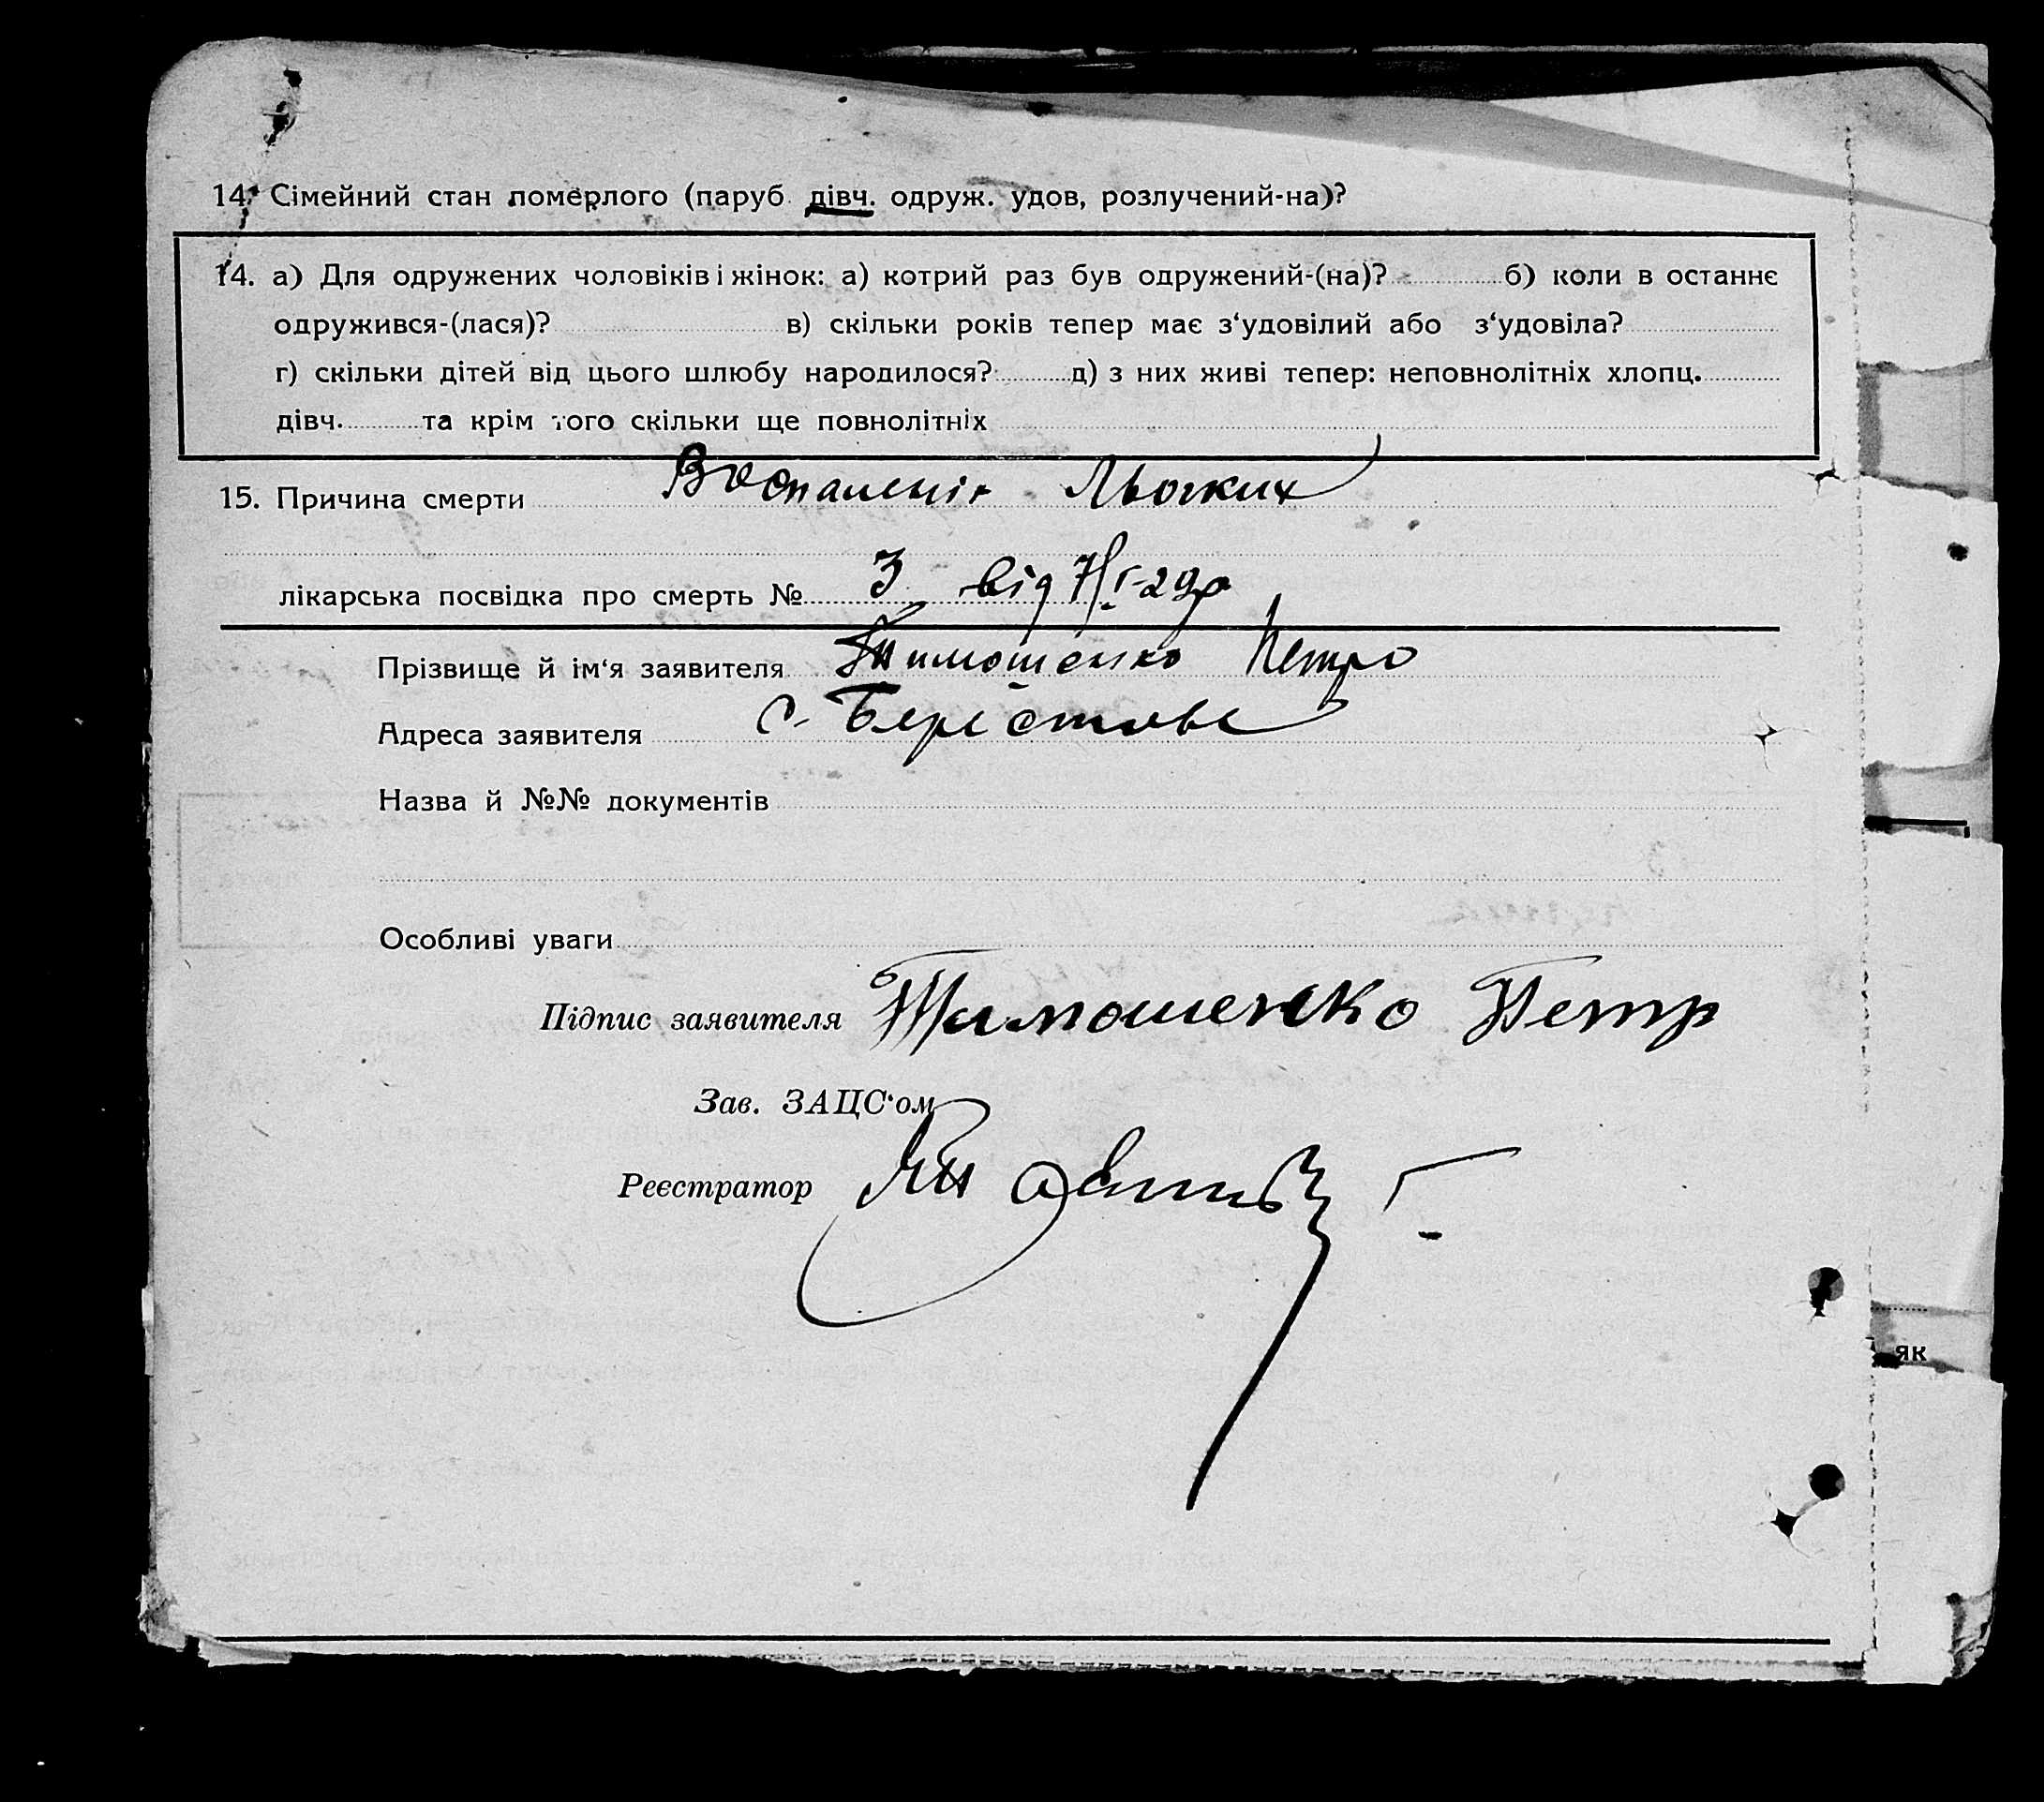 14. Сімейний стан померлого (паруб. дівч. одруж. удов, розлучений-на)?
14. а) Для одружених чоловіків і жінок: а) котрий раз був одружений-(на)? б) коли в останнє
одружився-(лася)? в) скільки років тепер має з‘удовілий або з‘удовіла?
г) скільки дітей від цього шлюбу народилося? д) з них живі тепер: неповнолітніх хлопц.
дівч. та крім того скільки ще повнолітніх
15. Причина смерти Воспаленія Льогких
лікарська посвідка про смерть № 3 від 7/I-29р
Прізвище й ім‘я заявителя Тимошенко Петро
Адреса заявителя с. Берестове
Назва й №№ документів
Особливі уваги
Підпис заявителя Тимошенко Петр
Зав. ЗАЦС‘ом
Реєстратор
як